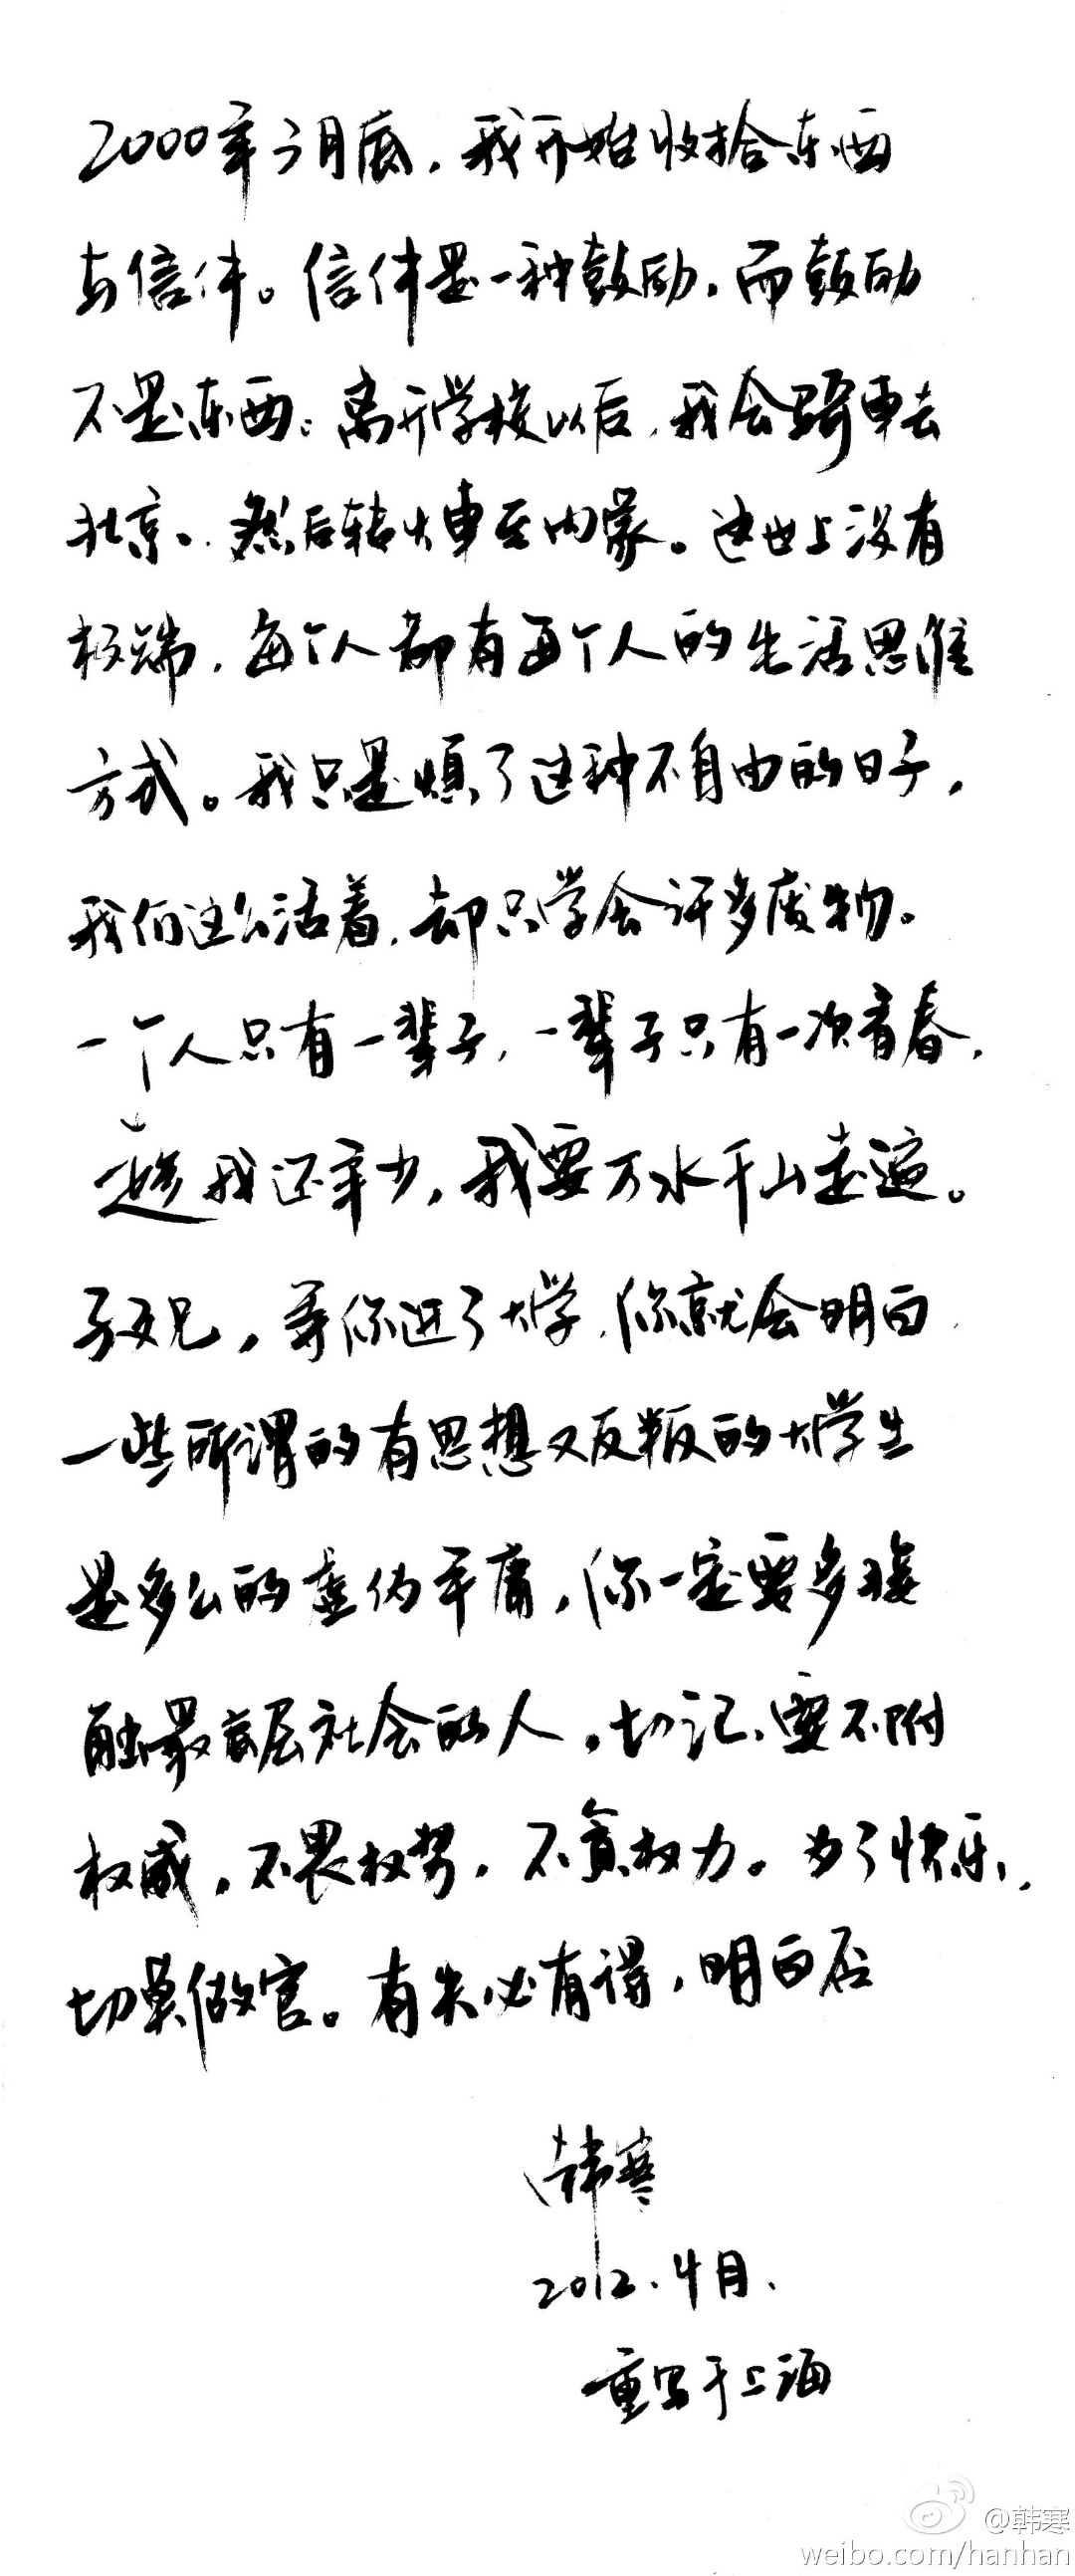 2000年3月底，我开始收拾东西
与信件。信件是一种鼓励，而鼓励
不是东西。离开学校以后，我会骑车去
北京。然后转火车至内蒙。这世上没有
极端，每个人都有每个人的生活思维
方式。我只是烦了这种不自由的日子，
我们这么活着，却只学会许多废物。
一个人只有一辈子，一辈子只有一次青春，
趁我还年少，我要万水千山走遍。
子又兄，等你进了大学，你就会明白
一些所谓的有思想又反叛的大学生
是多么的虚伪平庸，你一定要多接
触最底层社会的人，切记，要不附
权威，不畏权势，不贪权力。为了快乐，
切莫做官。有失必有得，明白否
韩寒
2012.4月.
重写于上海
@韩寒
weibo.com/hanhan